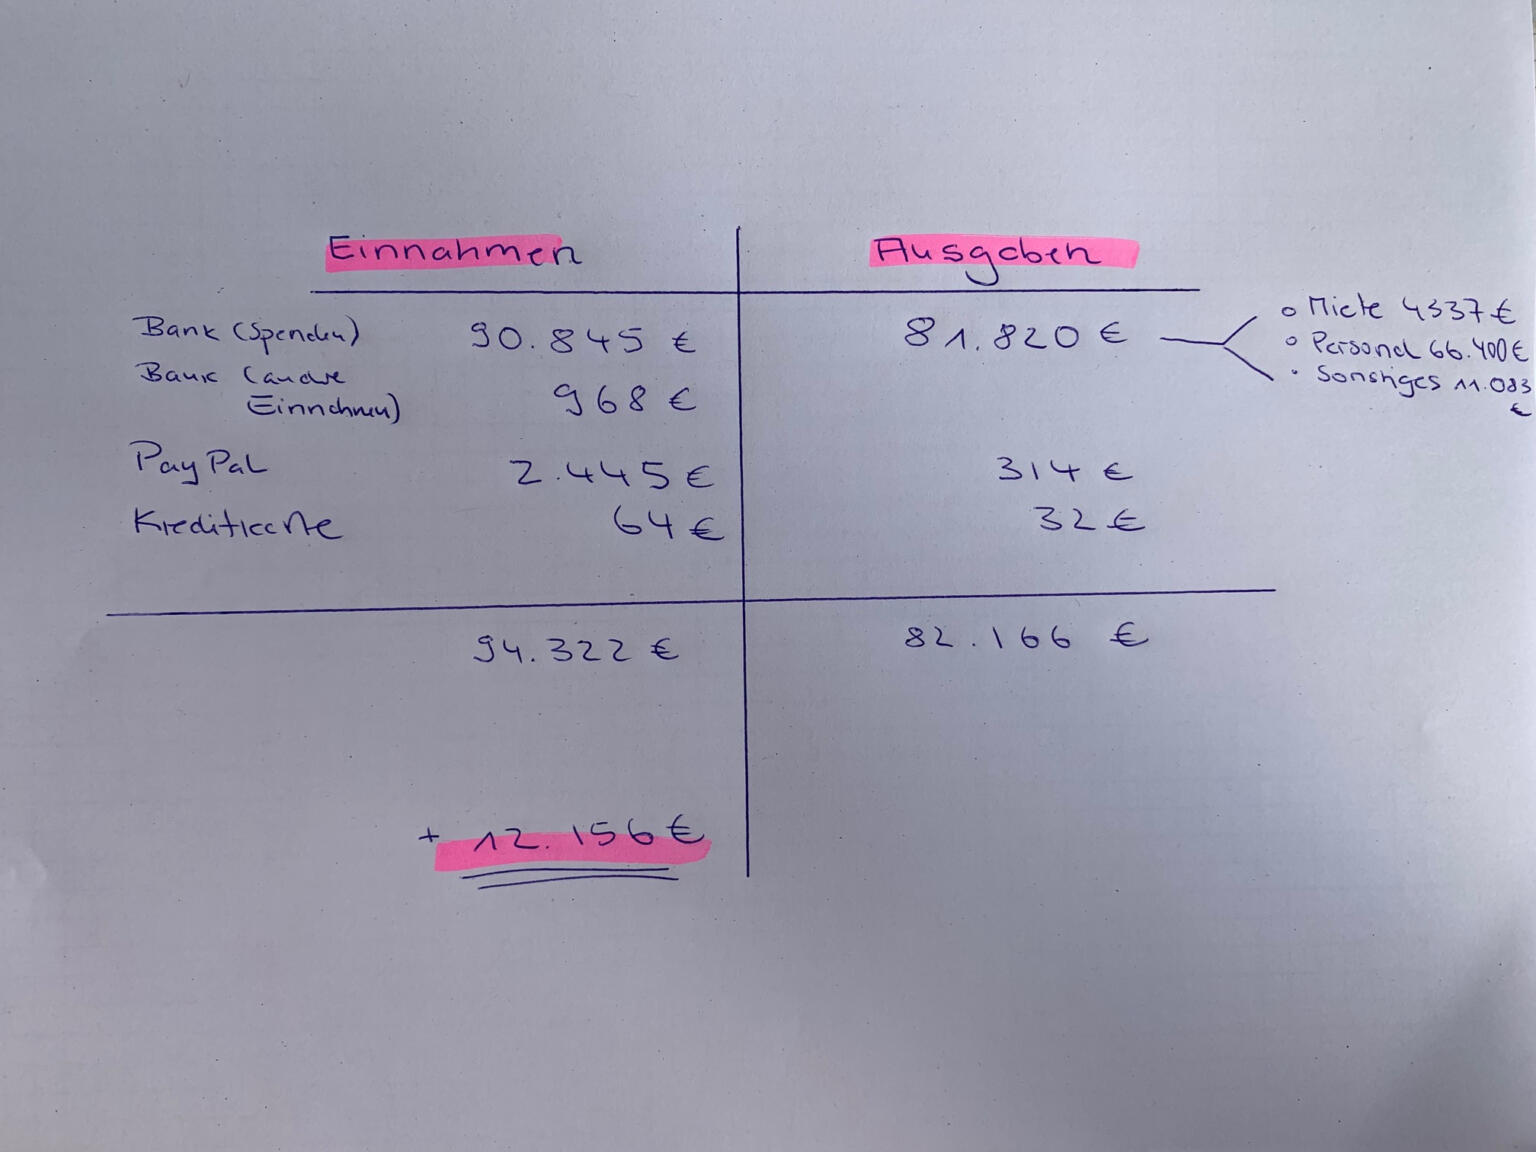 Einnahmen Ausgaben
Bank (Spenden) 90.845 € 81.820 €
Bank (andre
Einnahmen) 968 €
PayPal 2.445 € 314 €
Kreditkarte 64 € 32 €
94.322 € 82.166 €
+ 12.156 €
o Miete 4337 €
o Personal 66.400 €
• Sonstiges 11.083
€